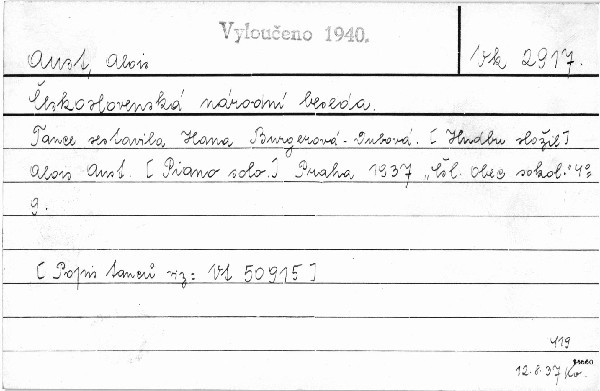 Vyloučeno 1940.
Aust, Alois
Vk 2917.
Československá národní beseda.
Tance sestavila Hana Burgerová-Dubová. [Hudbu složil]
Alois Aust. [Piano solo.] Praha 1937 „Čsl. obec sokol.“ 4°
9.
[Popis tanců viz: Vt 50915]
419
12.8.37 Ko.